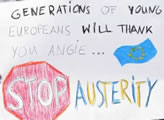 GENERATIONS OF YOUNG
EUROPEANS WILL THANK
YOU ANGIE...
STOP AUSTERITY